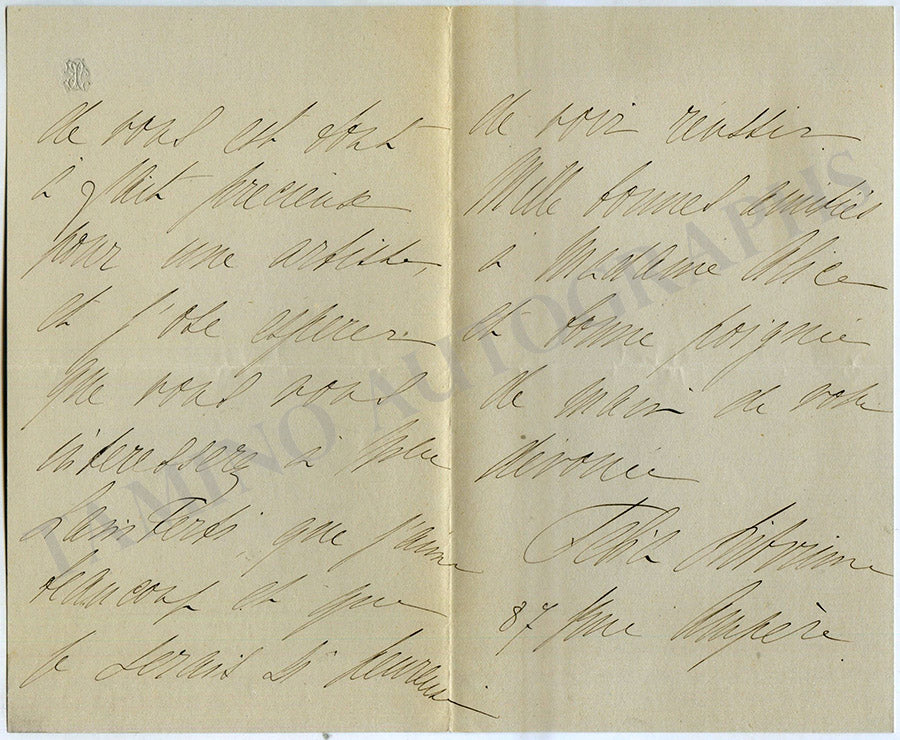 de vous est tout
à fait précieux
pour une artiste,
et j'ose espérer
que vous vous
intéresserez à Mme
que j'aime
beaucoup et que
je serais si heureuse
de voir réussir
Mille bonnes amitiés
à Madame Alice
et bonne poignée
de main de votre
dévouée
87 rue Ampère
TAMINO AUTOGRAPHS